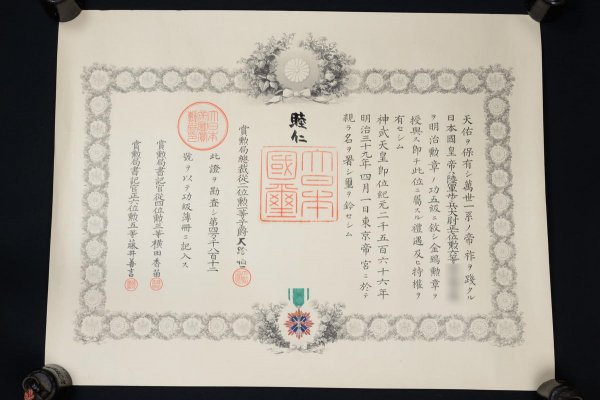 天佑ヲ保有シ萬世一系ノ帝祚ヲ踐タル
日本國皇帝ハ陸軍歩兵大尉正七位勲六等
ヲ明治勲章ノ功五級ニ敍シ金鵄勲章ヲ
授與ス即チ此位ニ屬スル禮遇及ヒ特權ヲ
有セシム
神武天皇即位紀元二千五百六十六年
明治三十九年四月一日東京帝宮ニ於テ
親ラ名ヲ署シ璽ヲ鈐セシム
睦仁
大日本國璽
賞勲局總裁從二位勲一等子爵大給恒
此證ヲ勘査シ第四千八百十二
號ヲ以テ功級薄冊ニ記入ス
賞勲局書記官從四位勲三等横田香苗
賞勲局書記官正六位勲五等藤井善言